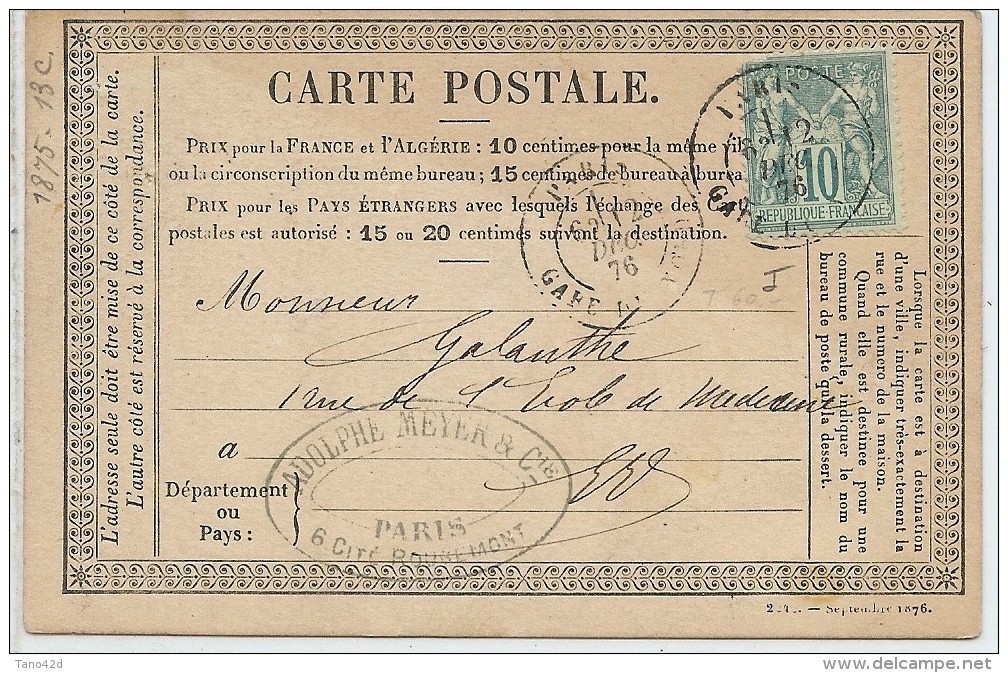 1875. 13 C.
L'adresse seule doit être mise de ce côté de la carte.
L'autre côté est réservé à la correspondance.
CARTE POSTALE.
PRIX pour la FRANCE et l'ALGÉRIE : 10 centimes pour la même vil
ou la circonscription du même bureau ; 15 centimes de bureau à burea
PRIX pour les PAYS ÉTRANGERS avec lesquels l'échange des Cart
postales est autorisé : 15 ou 20 centimes suivant la destination.
POSTE
10
REPUBLIQUE FRANÇAISE
PARIS
12
DEC.
76
GARE
PARIS
12
DEC.
76
GARE DU NORD
T 60.-
Monsieur
Galanthe
1 rue de l'Ecole de Medecine
a
EV
Département
ou
Pays :
ADOLPHE MEYER & Cie.
PARIS
6 CITÉ ROUGEMONT
Lorsque la carte est à destination
d'une ville, indiquer très-exactement la
rue et le numero de la maison.
Quand elle est destinée pour une
commune rurale, indiquer le nom du
bureau de poste qui la dessert.
— Septembre 1876.
Tano42d
delcampe.net